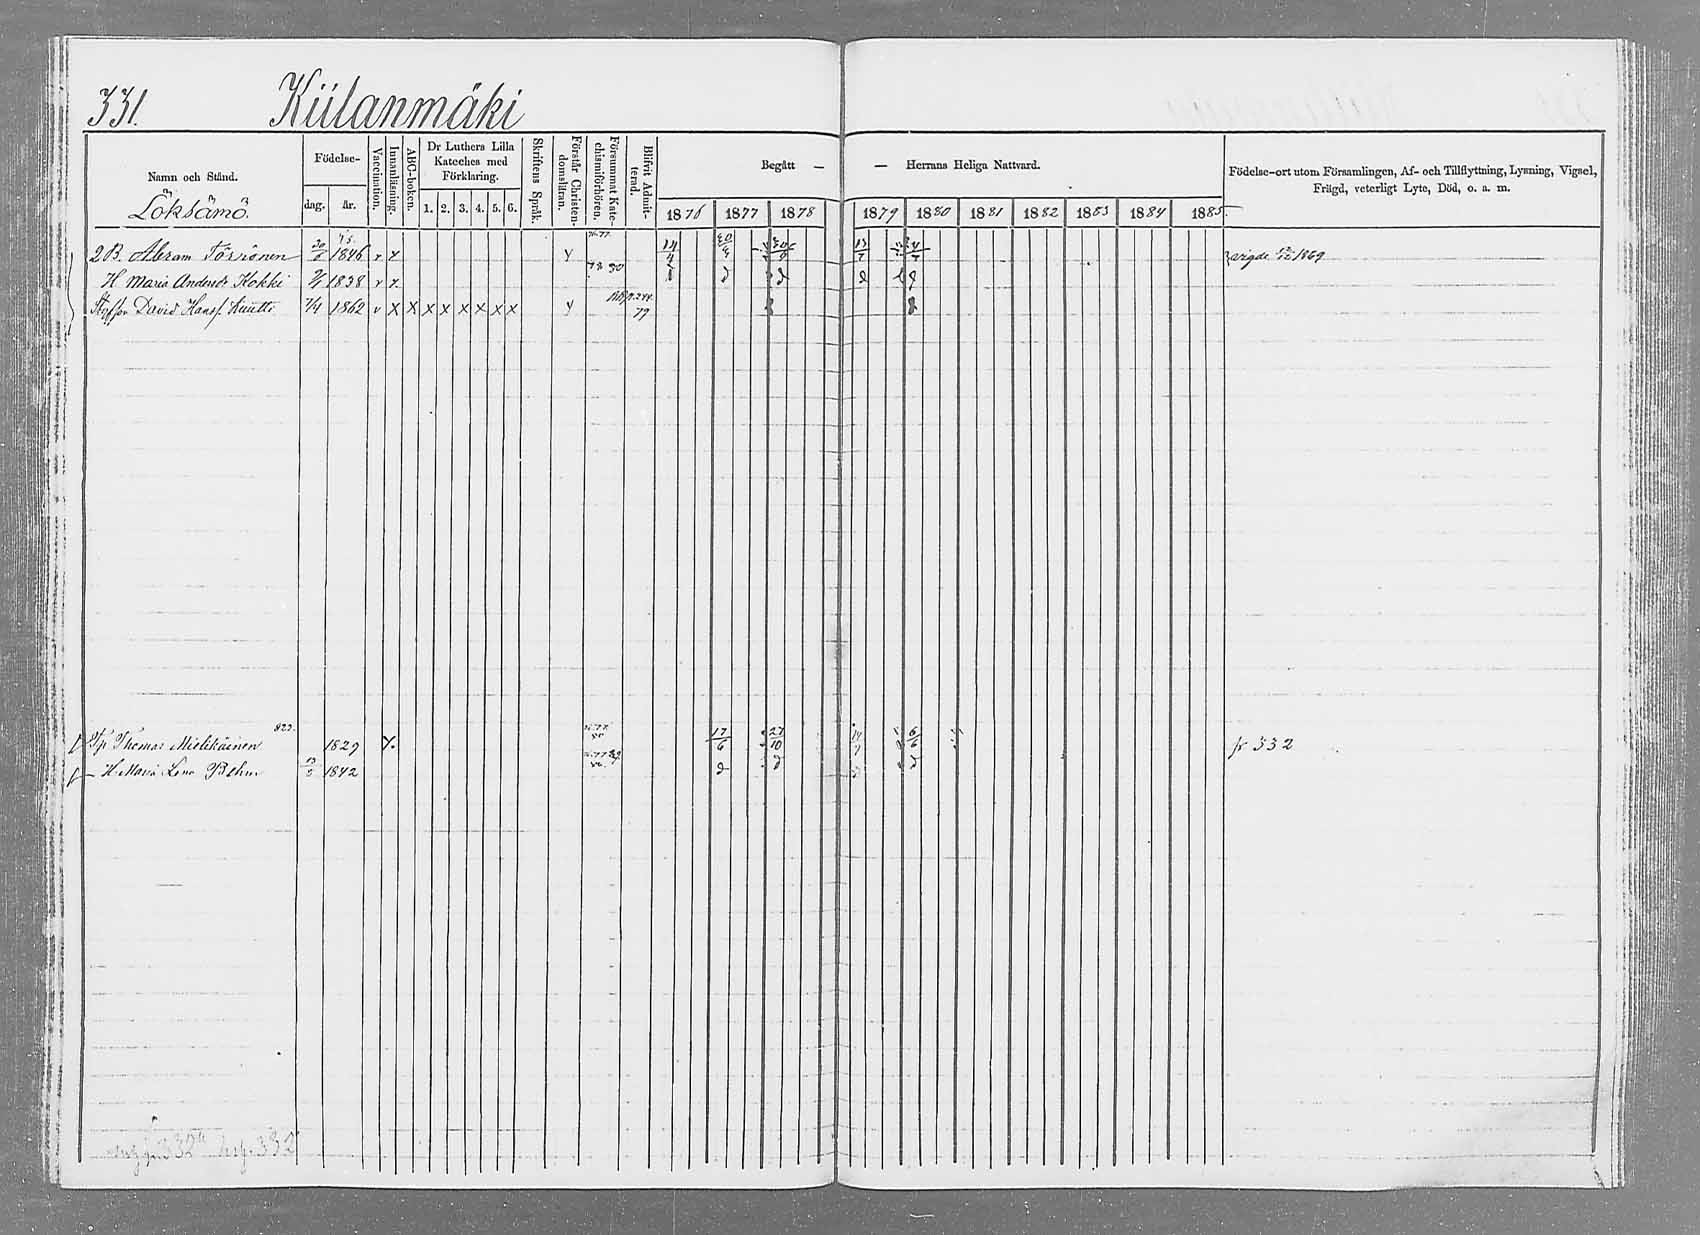 331. Kiilanmäki
Namn och Stånd.
Löksämö.
Födelse-
dag. år.
Vaccination.
Innanläsning.
ABC-boken.
Dr Luthers Lilla
Kateches med
Förklaring.
1. 2. 3. 4. 5. 6.
Skriftens Språk.
Förstår Christen-
domsläran.
Försummat Kate-
chismiförhören.
Blifvit Admit-
terad.
Begått — — Herrans Heliga Nattvard.
1876 1877 1878 1879 1880 1881 1882 1883 1884 1885
Födelse-ort utom Församlingen, Af- och Tillflyttning, Lysning, Vigsel,
Frägd, veterligt Lyte, Död, o. a. m.
2 B. Abram Törrönen 1846 v y y 1869
H Maria Andersdr Kokki 1838 v y d d d d d
David Hansf. Kuutti 7/4 1862 v X X X X X X X X y 79
Thomas Mielikäinen 1829 y. 17/6 27/10 6/6 fr 332
H. Maria Lena Behm 1842 d d d d
332